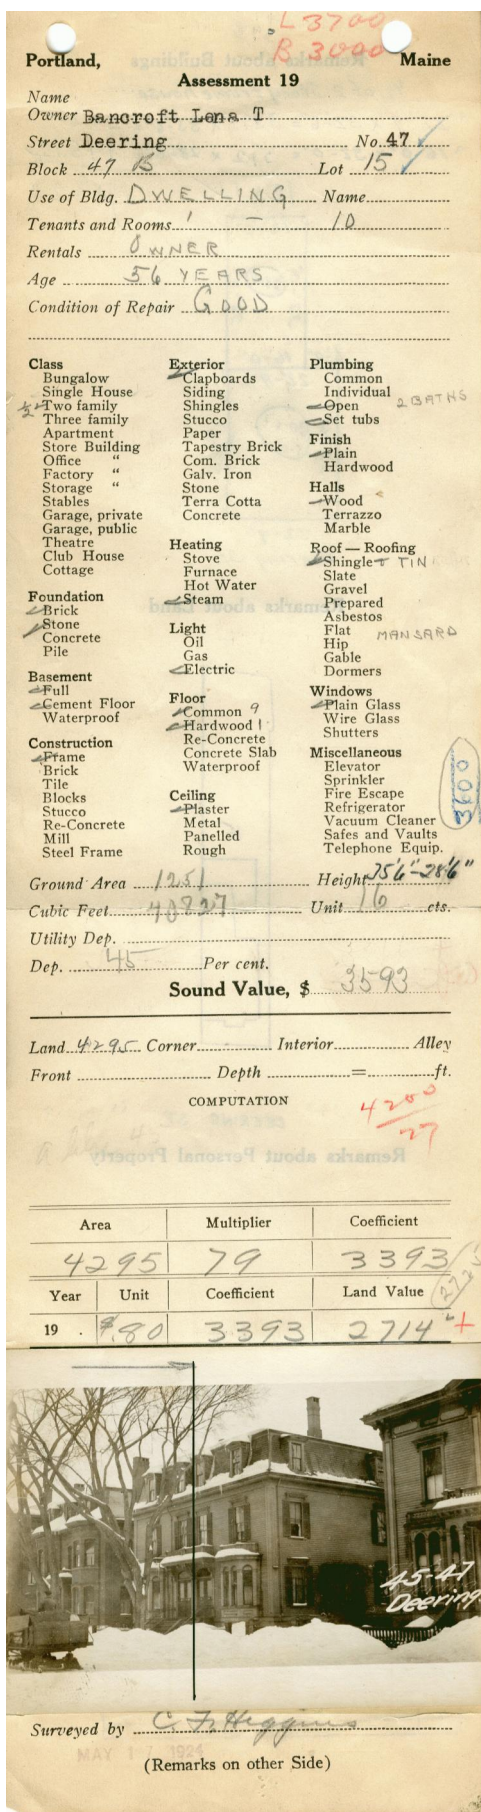 L 3700
B 3000
Portland, Maine
Assessment 19
Name
Owner Bancroft Lena T
Street Deering No. 47
Block 47 B Lot 15
Use of Bldg. DWELLING Name
Tenants and Rooms 1 - 10
Rentals OWNER
Age 56 YEARS
Condition of Repair GOOD
Class
Bungalow
Single House
1/2 Two family
Three family
Apartment
Store Building
Office "
Factory "
Storage "
Stables
Garage, private
Garage, public
Theatre
Club House
Cottage
Foundation
Brick
Stone
Concrete
Pile
Basement
Full
Cement Floor
Waterproof
Construction
Frame
Brick
Tile
Blocks
Stucco
Re-Concrete
Mill
Steel Frame
Exterior
Clapboards
Siding
Shingles
Stucco
Paper
Tapestry Brick
Com. Brick
Galv. Iron
Stone
Terra Cotta
Concrete
Heating
Stove
Furnace
Hot Water
Steam
Light
Oil
Gas
Electric
Floor
Common 9
Hardwood 1
Re-Concrete
Concrete Slab
Waterproof
Ceiling
Plaster
Metal
Panelled
Rough
Plumbing
Common
Individual
Open 2 BATHS
Set tubs
Finish
Plain
Hardwood
Halls
Wood
Terrazzo
Marble
Roof — Roofing
Shingle + TIN
Slate
Gravel
Prepared
Asbestos
Flat MANSARD
Hip
Gable
Dormers
Windows
Plain Glass
Wire Glass
Shutters
Miscellaneous
Elevator
Sprinkler
Fire Escape
Refrigerator
Vacuum Cleaner
Safes and Vaults
Telephone Equip.
3600
Ground Area 1251 Height 35'6"-28'6"
Cubic Feet 40827 Unit 16 cts.
Utility Dep.
Dep. 45 Per cent.
Sound Value, $ 3593
Land 4295 Corner Interior Alley
Front Depth = ft.
COMPUTATION
4200
27
Remarks about Personal Property
Area Multiplier Coefficient
4295 79 3393
Year Unit Coefficient Land Value
19 . $.80 3393 2714 +
45-47
Deering
Surveyed by C. F. Higgins
MAY 17 1924
(Remarks on other Side)